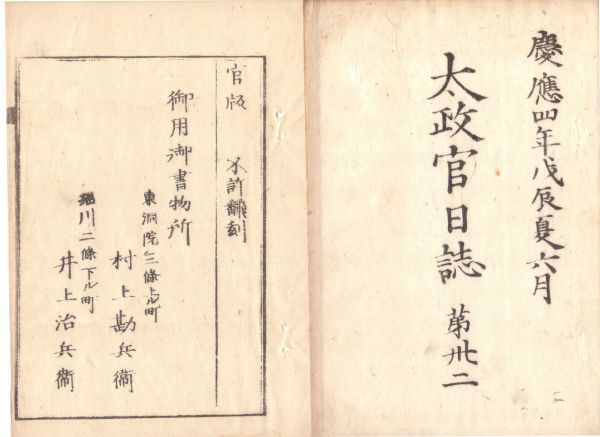 慶應四年戊辰夏六月
太政官日誌 第卅二
官版 不許飜刻
御用御書物所
東洞院三條上ル町
村上勘兵衞
堀川二條下ル町
井上治兵衞